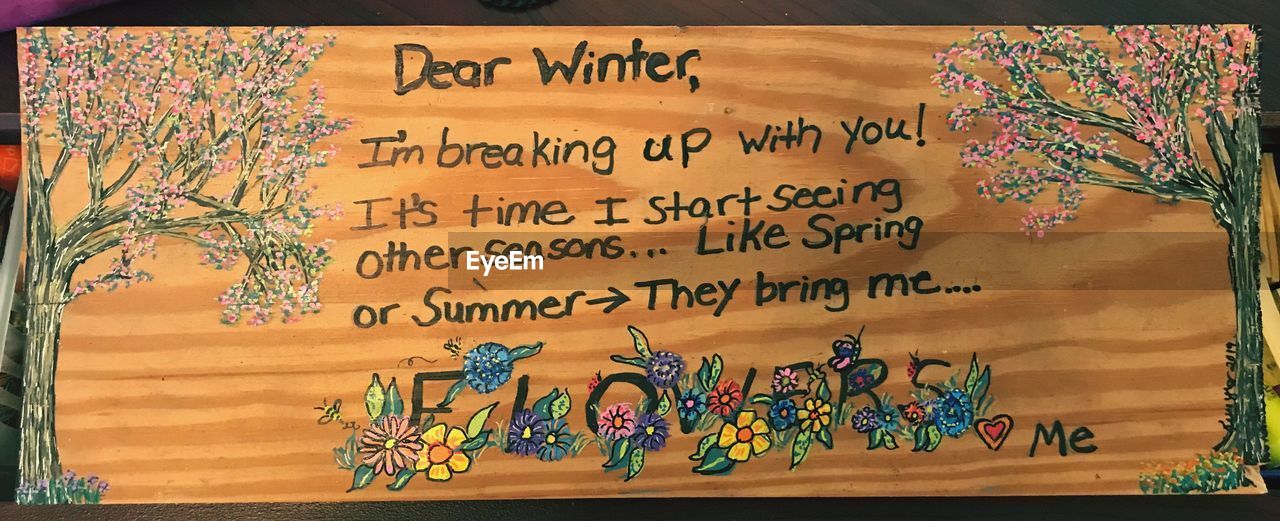 Dear Winter,
I'm breaking up with you!
It's time I start seeing
other seasons... Like Spring
or Summer → They bring me....
FLOWERS
♡ Me
EyeEm